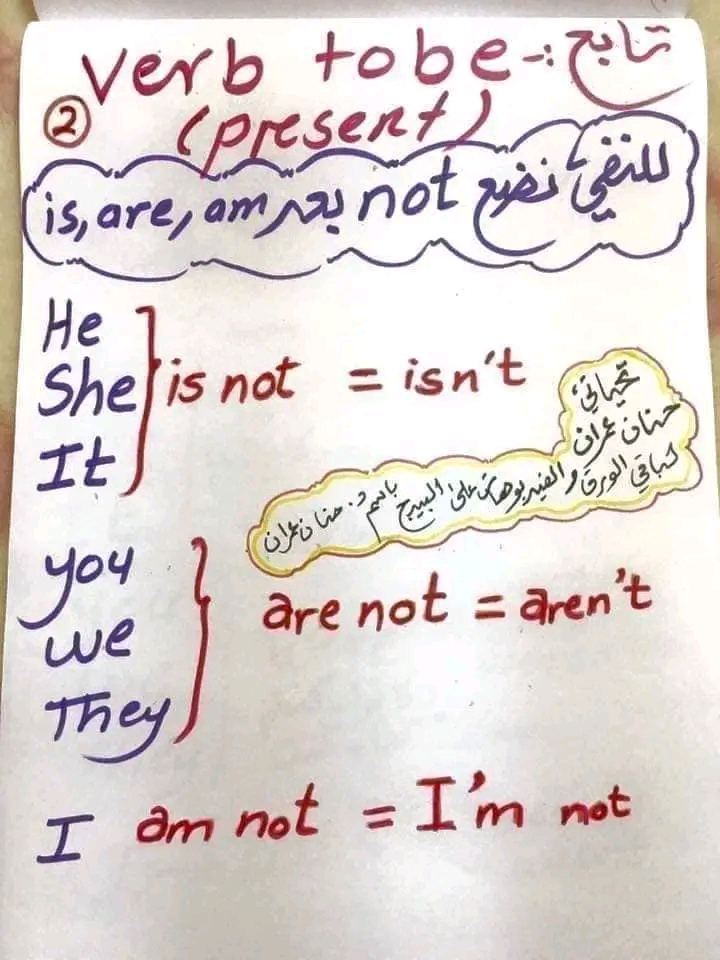 تابع :- verb to be
② (present)
للنفي، نضع not بعد is, are, am
He
She
It
is not = isn't
تحياتي،
حنان عمران
كباقي الورق والفيديوهات على البيدج باسم د. حنان عمران
you
we
They
are not = aren't
I am not = I'm not